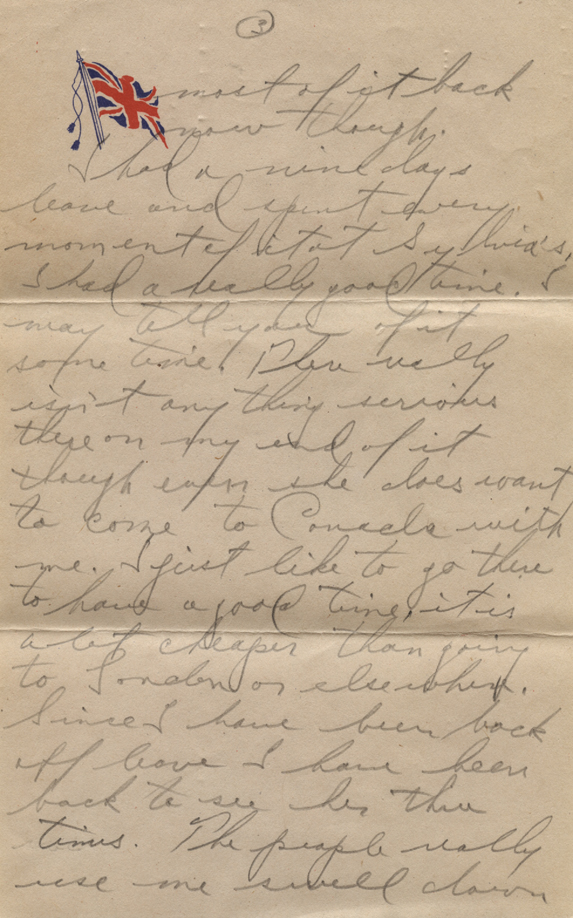 3
most of it back
now though.
I had a nine days
leave and spent every
moment of it at Sylvia's,
I had a really good time. I
may tell you of it
some time. There really
isn't anything serious
there on my end of it
though even she does want
to come to Canada with
me. I just like to go there
to have a good time, it is
a lot cheaper than going
to London or elsewhere.
Since I have been back
off leave I have been
back to see her three
times. The people really
use me swell down